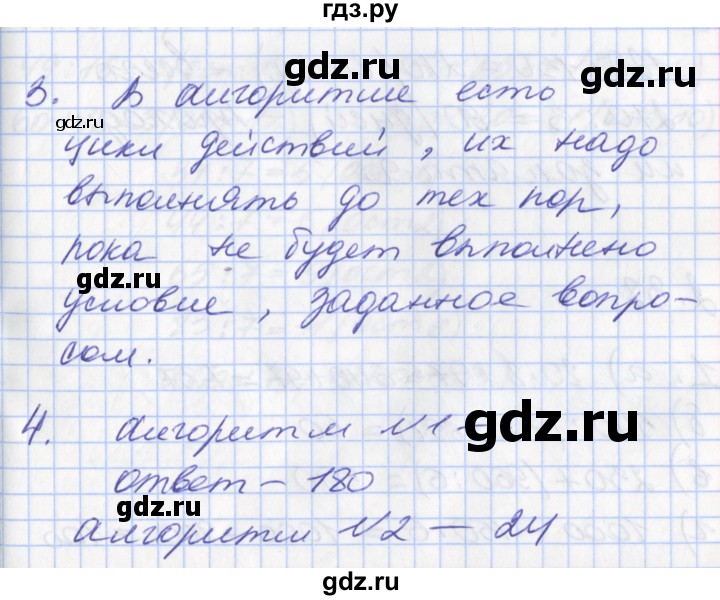 гдз.ру
gdz.ru
gdz.ru
3. В алгоритме есть
gdz.ru
цикл действий, их надо
выполнять до тех пор,
пока не будет выполнено
gdz.ru
условие, заданное вопро-
gdz.ru
сом.
4. алгоритм №1 -
gdz.ru
ответ - 180
gdz.ru
алгоритм №2 - 24
gdz.ru
gdz.ru